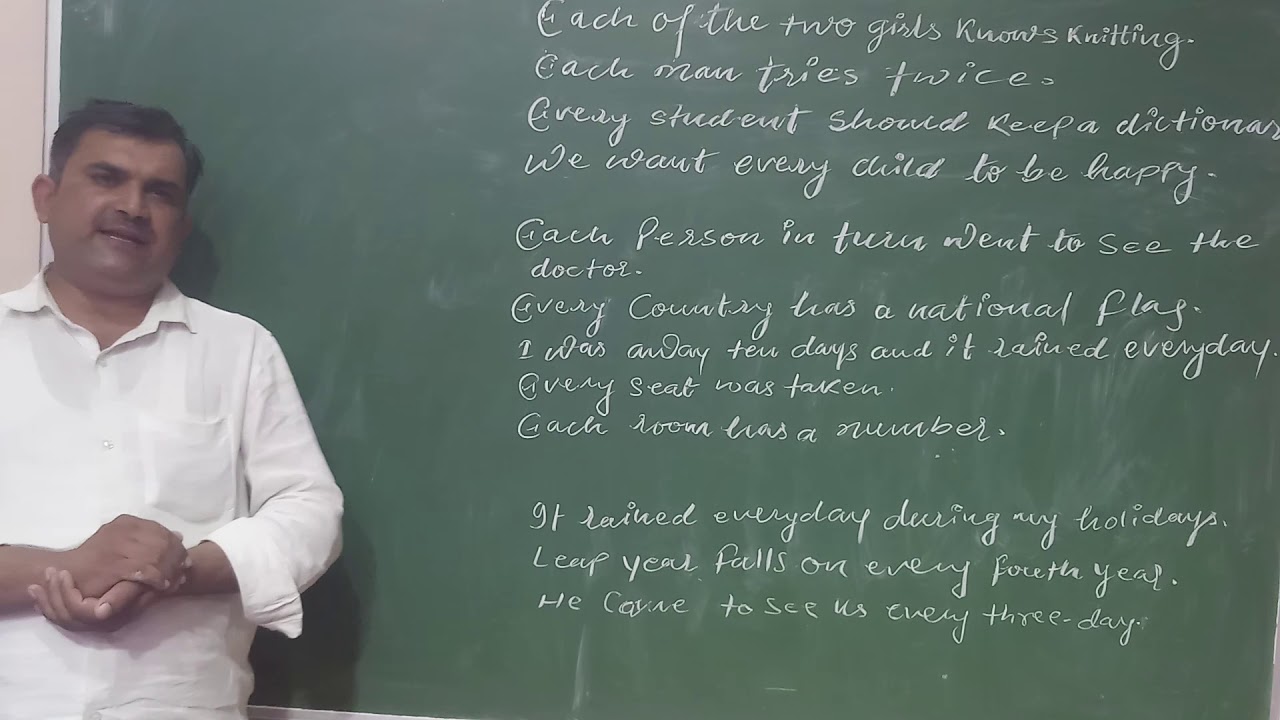 Each of the two girls knows knitting.
Each man tries twice.
Every student should keep a dictionar
We want every child to be happy.
Each Person in turn went to see the
doctor.
Every Country has a national flag.
I was away ten days and it rained everyday.
Every seat was taken.
Each room has a number.
It rained everyday during my holidays.
Leap year falls on every fourth year.
He Came to see us every three-day.